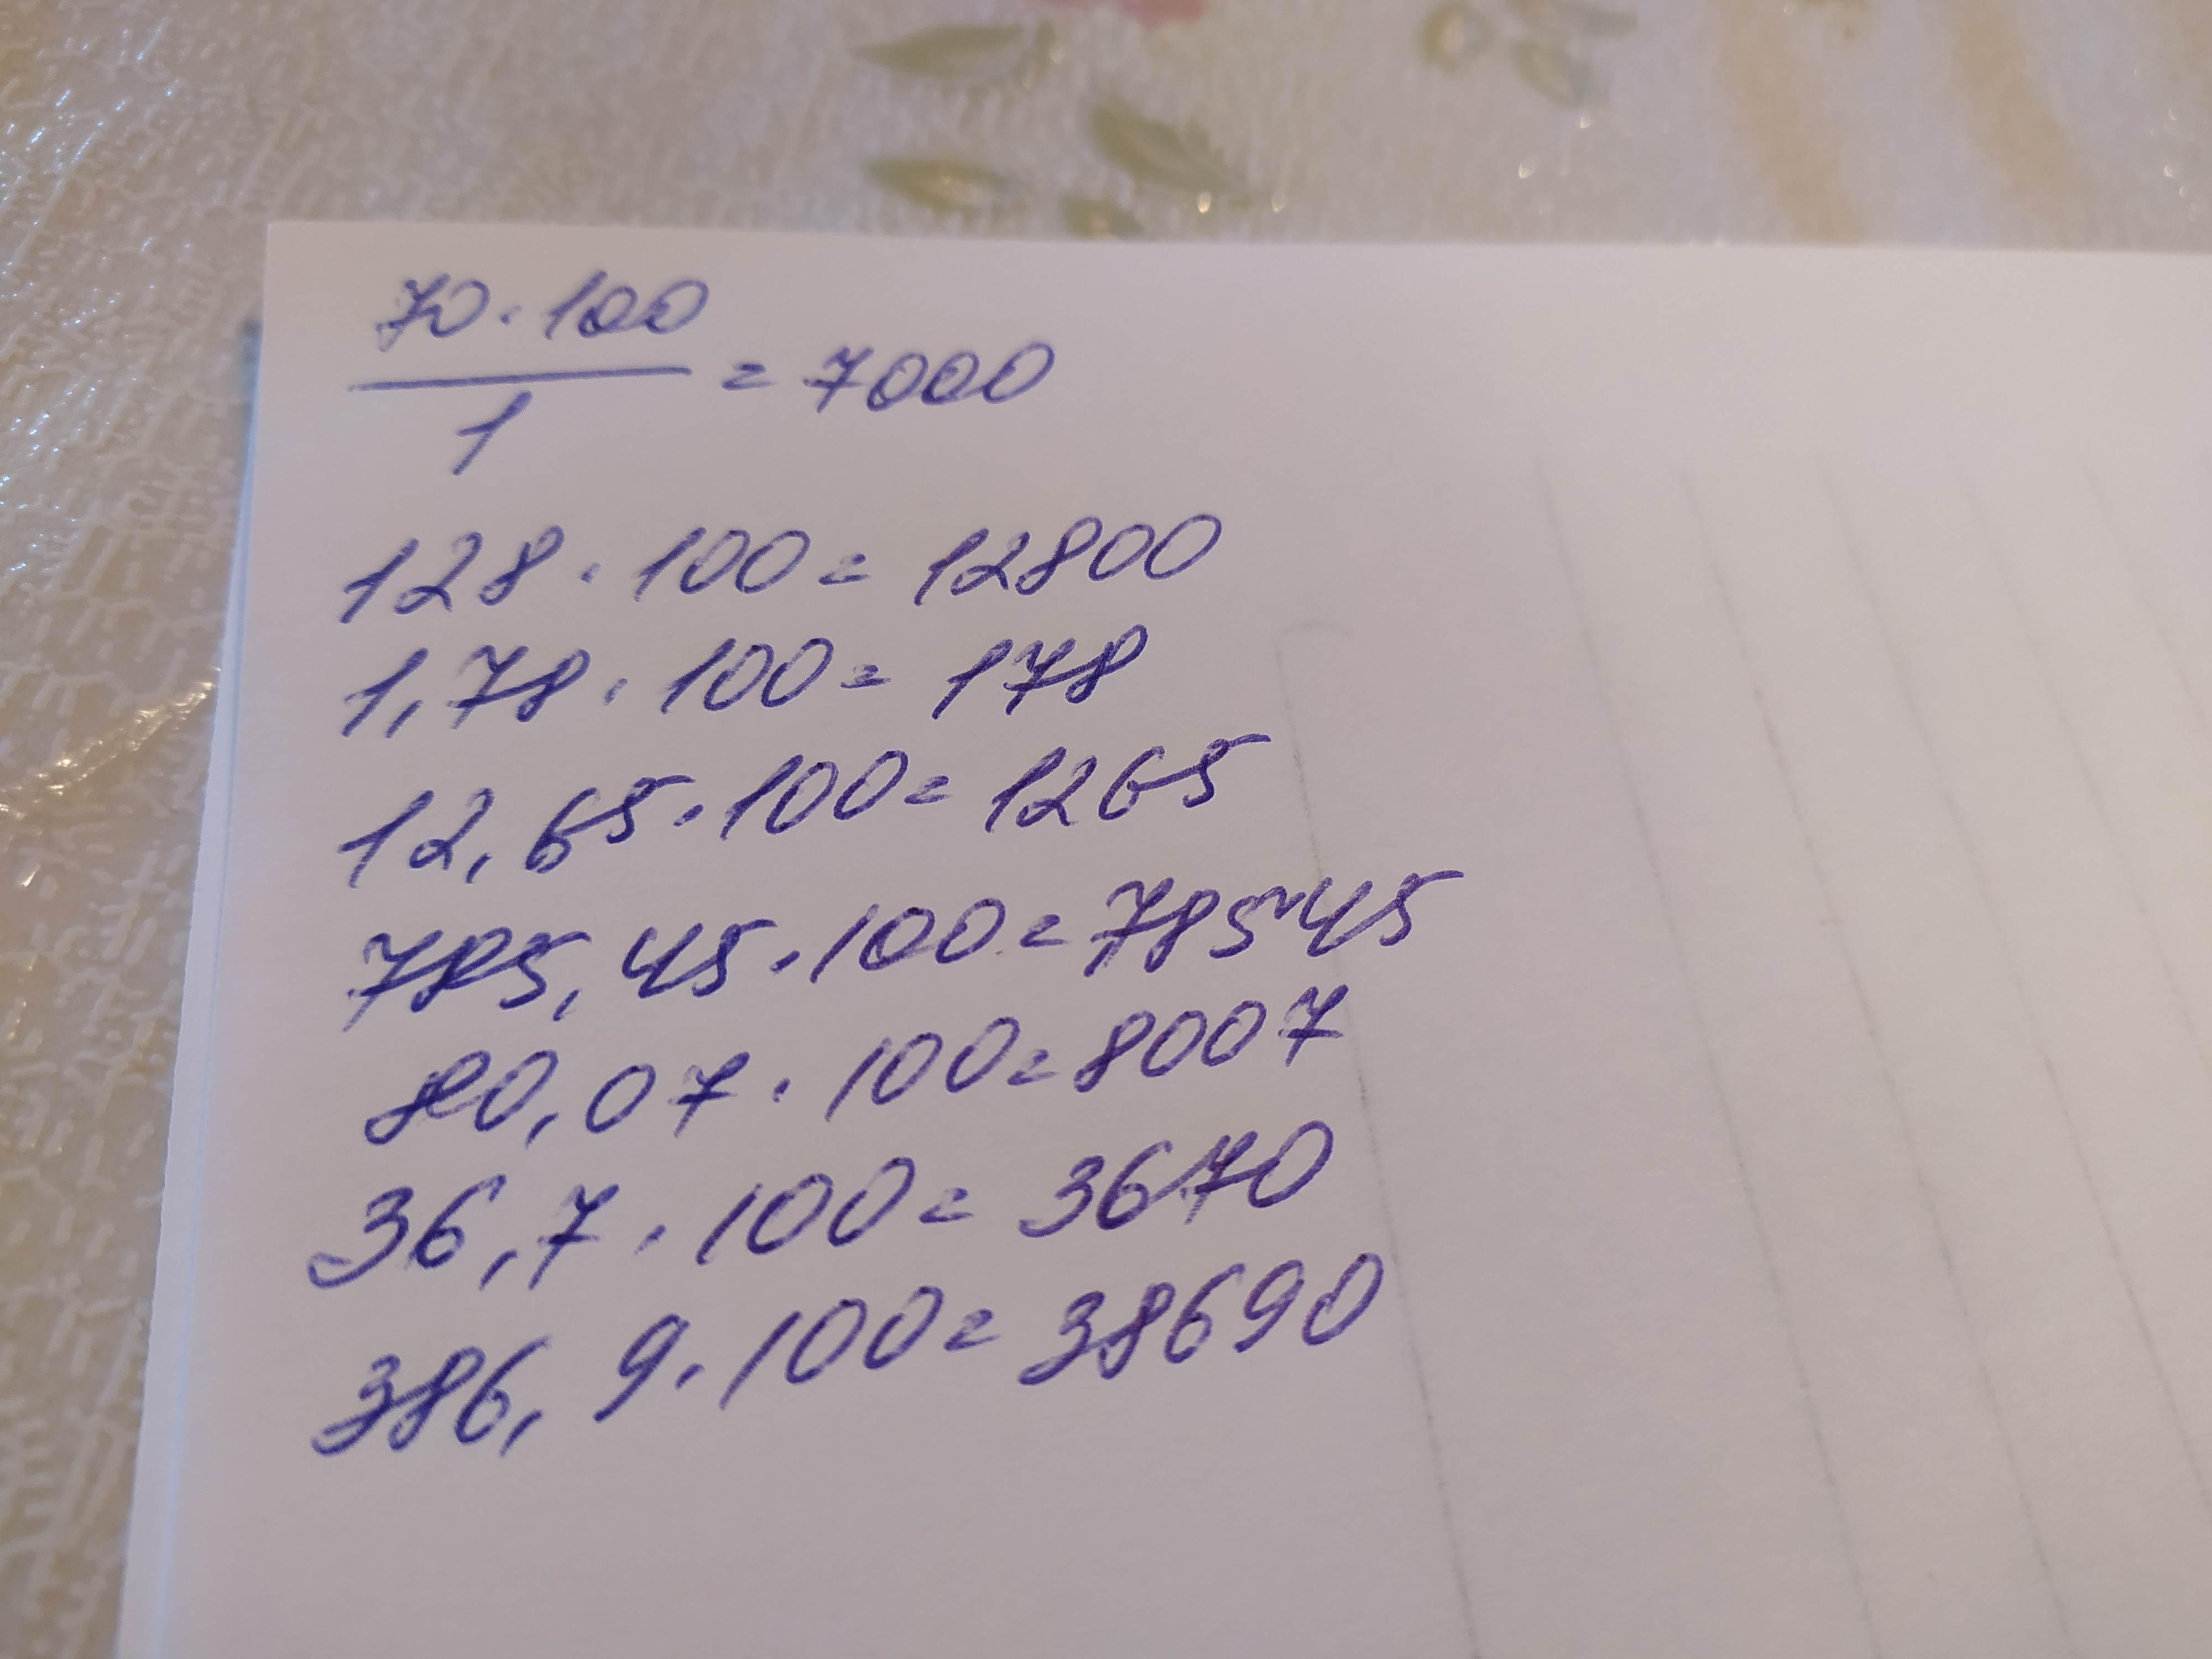 70·100
= 7000
1
128·100= 12800
1,78·100= 178
12,65·100= 1265
785,45·100=78545
80,07·100=8007
36,7·100= 3670
386,9·100= 38690